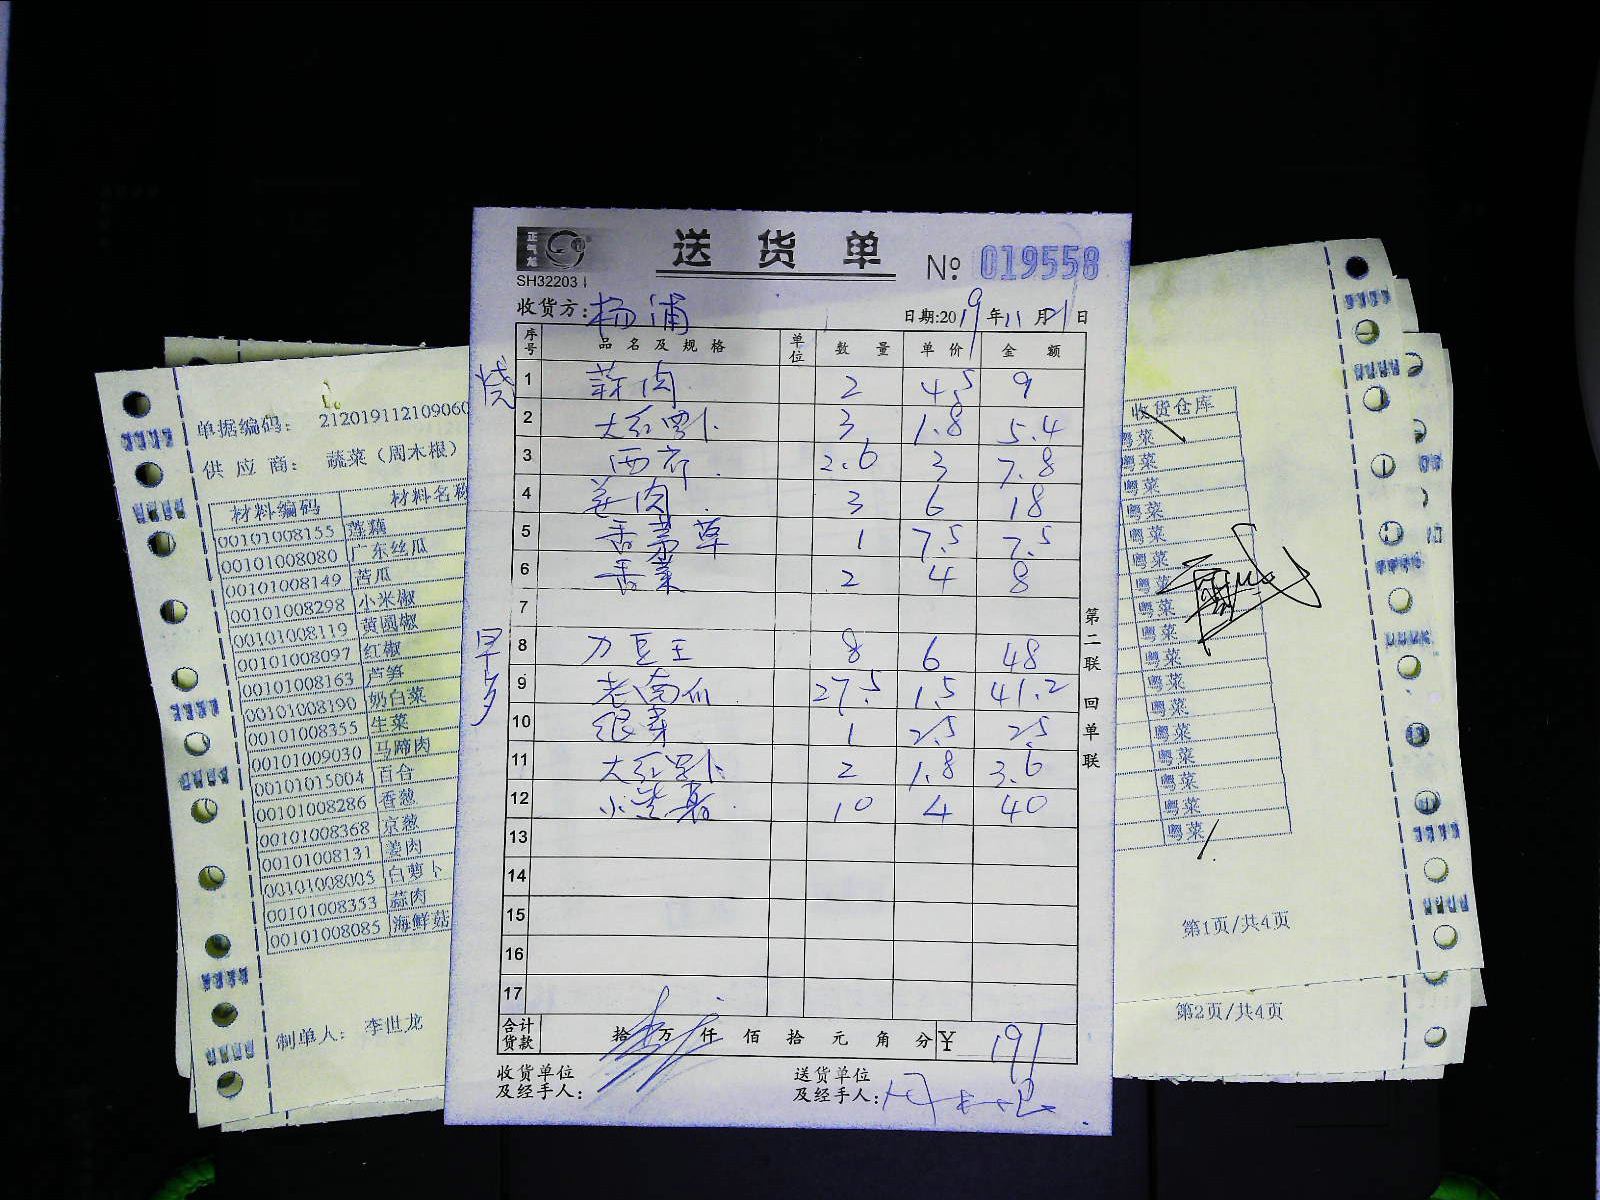 正气龙
送货单
№ 019558
SH32203
收货方：杨浦
日期:2019年11月21日
序号 品名及规格 单位 数量 单价 金额
烧
1 蒜肉 2 4.5 9
2 大红罗卜 3 1.8 5.4
3 西芹 2.6 3 7.8
4 姜肉 3 6 18
5 香茅草 1 7.5 7.5
6 香菜 2 4 8
7
早夕
8 刀豆王 8 6 48
9 老南瓜 27.5 1.5 41.2
10 银芽 1 2.5 2.5
11 大红罗卜 2 1.8 3.6
12 小芝麻 10 4 40
13
14
15
16
17
合计货款 拾万仟佰拾元角分 ¥ 191
收货单位及经手人：
送货单位及经手人：周木根
第二联 回单联
单据编码： 212019112109060
供应商： 蔬菜（周木根）
材料编码 材料名称
00101008155 莲藕
00101008080 广东丝瓜
00101008149 苦瓜
00101008298 小米椒
00101008119 黄圆椒
00101008097 红椒
00101008163 芦笋
00101008190 奶白菜
00101008355 生菜
00101009030 马蹄肉
00101015004 百合
00101008286 香葱
00101008368 京葱
00101008131 姜肉
00101008005 白萝卜
00101008353 蒜肉
00101008085 海鲜菇
制单人： 李世龙
收货仓库
粤菜
粤菜
粤菜
粤菜
粤菜
粤菜
粤菜
粤菜
粤菜
粤菜
粤菜
粤菜
粤菜
粤菜
粤菜
粤菜
粤菜
第1页/共4页
第2页/共4页